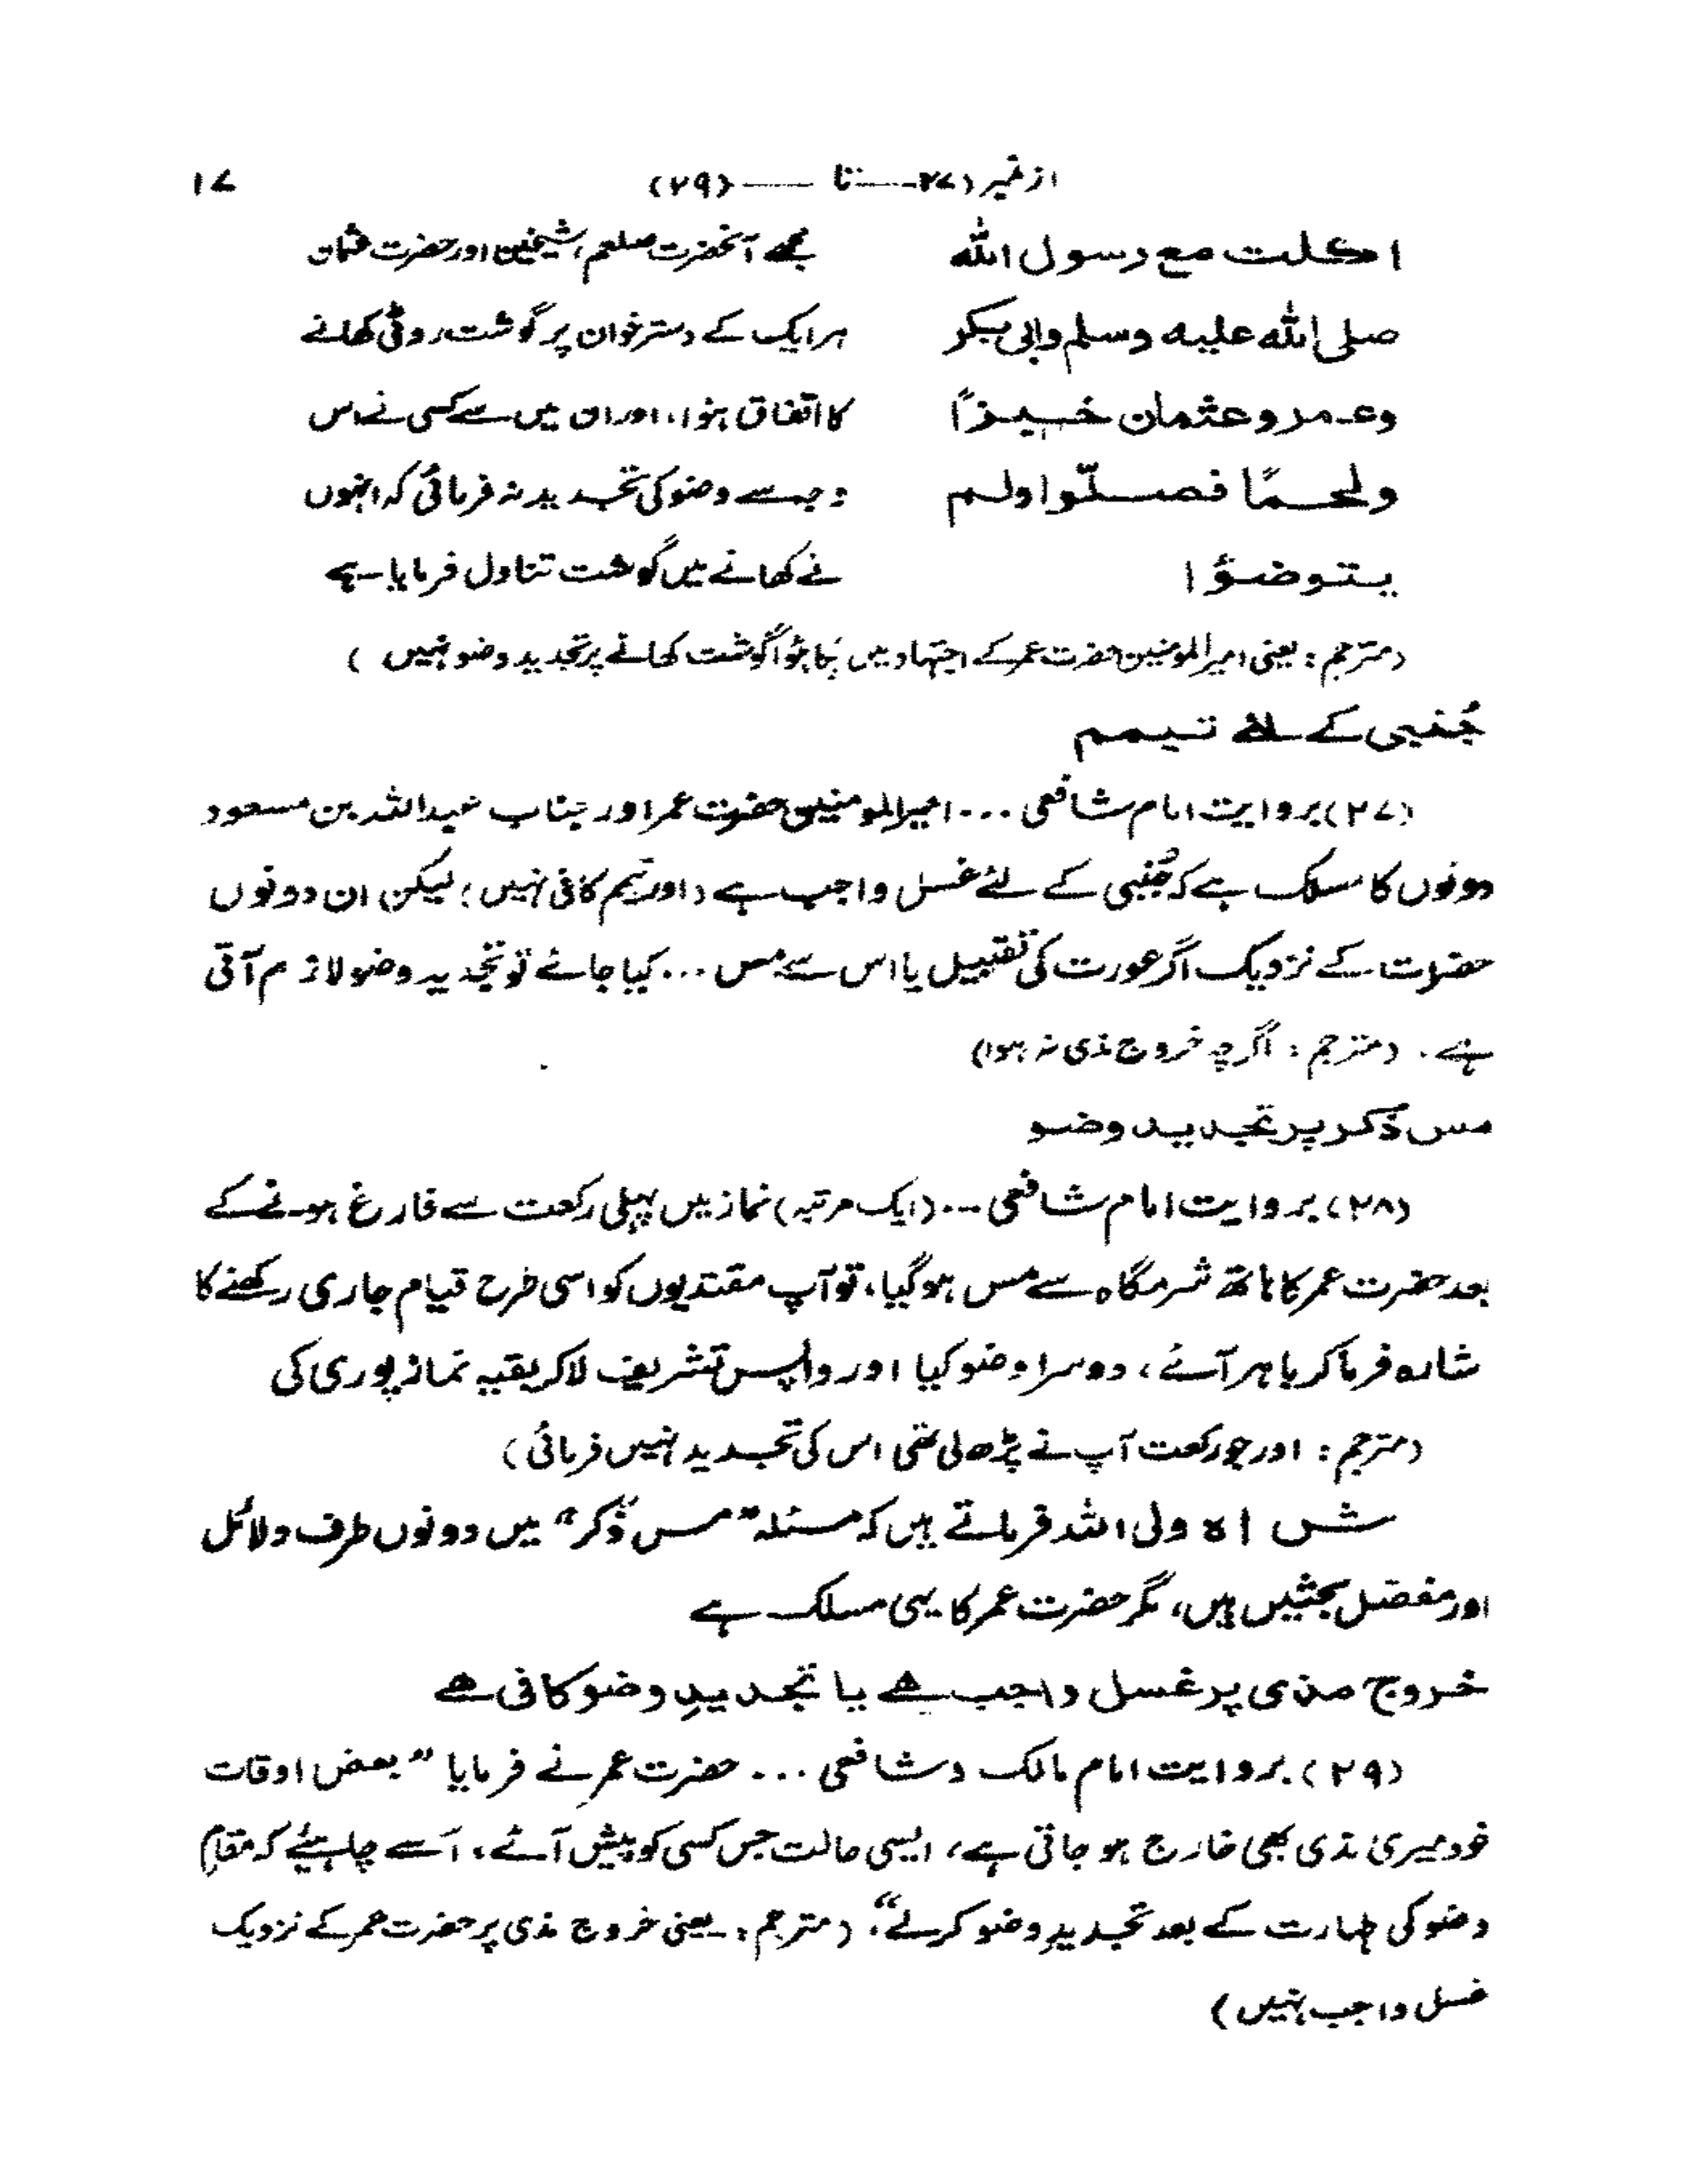 از نمبر (۲۷ــــ تا ــــ (۲۹) ۱۷
اکلت مع رسول الله مجھے آنحضرت صلعم، شیخین اور حضرت عثمان
صلی الله علیه وسلم وابی بکر ہر ایک کے دسترخوان پر گوشت روٹی کھانے
وعمر وعثمان خبزاً کا اتفاق ہوا، اور ان میں سے کسی نے اس
ولحمًا فصلّوا ولم وجہ سے وضو کی تجدید نہ فرمائی کہ انہوں
یتوضؤا نے کھانے میں گوشت تناول فرمایا ہے
(مترجم: یعنی امیر المومنین حضرت عمر کے اجتہاد میں پکا ہوا گوشت کھانے پر تجدید وضو نہیں )
جُنبی کے لئے تیمم
(۲۷) بروایت امام شافعی ... امیر المومنین حضرت عمر اور جناب عبداللہ بن مسعود
دونوں کا مسلک ہے کہ جُنبی کے لئے غسل واجب ہے (اور تیمم کافی نہیں؛ لیکن ان دونوں
حضرات کے نزدیک اگر عورت کی تقبیل یا اس سے مس ... کیا جائے تو تجدید وضو لازم آتی
ہے۔ (مترجم: اگرچہ خروج مذی نہ ہوا)
مس ذکر پر تجدید وضو
(۲۸) بروایت امام شافعی ... (ایک مرتبہ) نماز میں پہلی رکعت سے فارغ ہونے کے
بعد حضرت عمر کا ہاتھ شرمگاہ سے مس ہو گیا، تو آپ مقتدیوں کو اسی طرح قیام جاری رکھنے کا
شارہ فرما کر باہر آئے، دوسرا وضو کیا اور واپس تشریف لا کر بقیہ نماز پوری کی
(مترجم: اور جو رکعت آپ نے پڑھ لی تھی اس کی تجدید نہیں فرمائی)
شاہ ولی اللہ فرماتے ہیں کہ مسئلہ "مس ذکر" میں دونوں طرف دلائل
اور مفصّل بحثیں ہیں، مگر حضرت عمر کا یہی مسلک ہے
خروج مذی پر غسل واجب ہے یا تجدیدِ وضو کافی ہے
(۲۹) بروایت امام مالک و شافعی ... حضرت عمر نے فرمایا "بعض اوقات
خود میری مذی بھی خارج ہو جاتی ہے، ایسی حالت جس کسی کو پیش آئے، اسے چاہیئے کہ مقامِ
وضو کی طہارت کے بعد تجدیدِ وضو کر لے"، (مترجم: یعنی خروج مذی پر حضرت عمر کے نزدیک
غسل واجب نہیں)